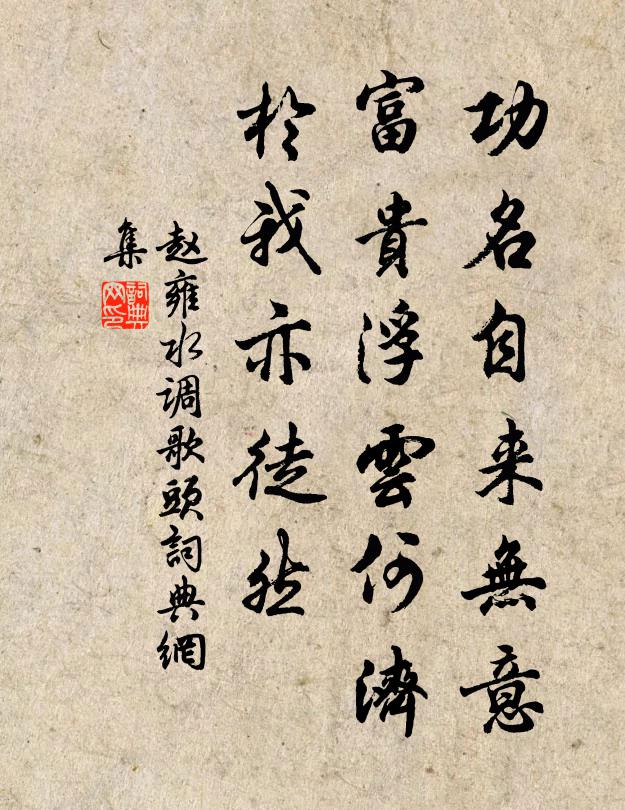 功名自来無意
富貴浮雲何濟
於我亦徒然
赵雍水调歌頭詞典網
集
詞典
网印